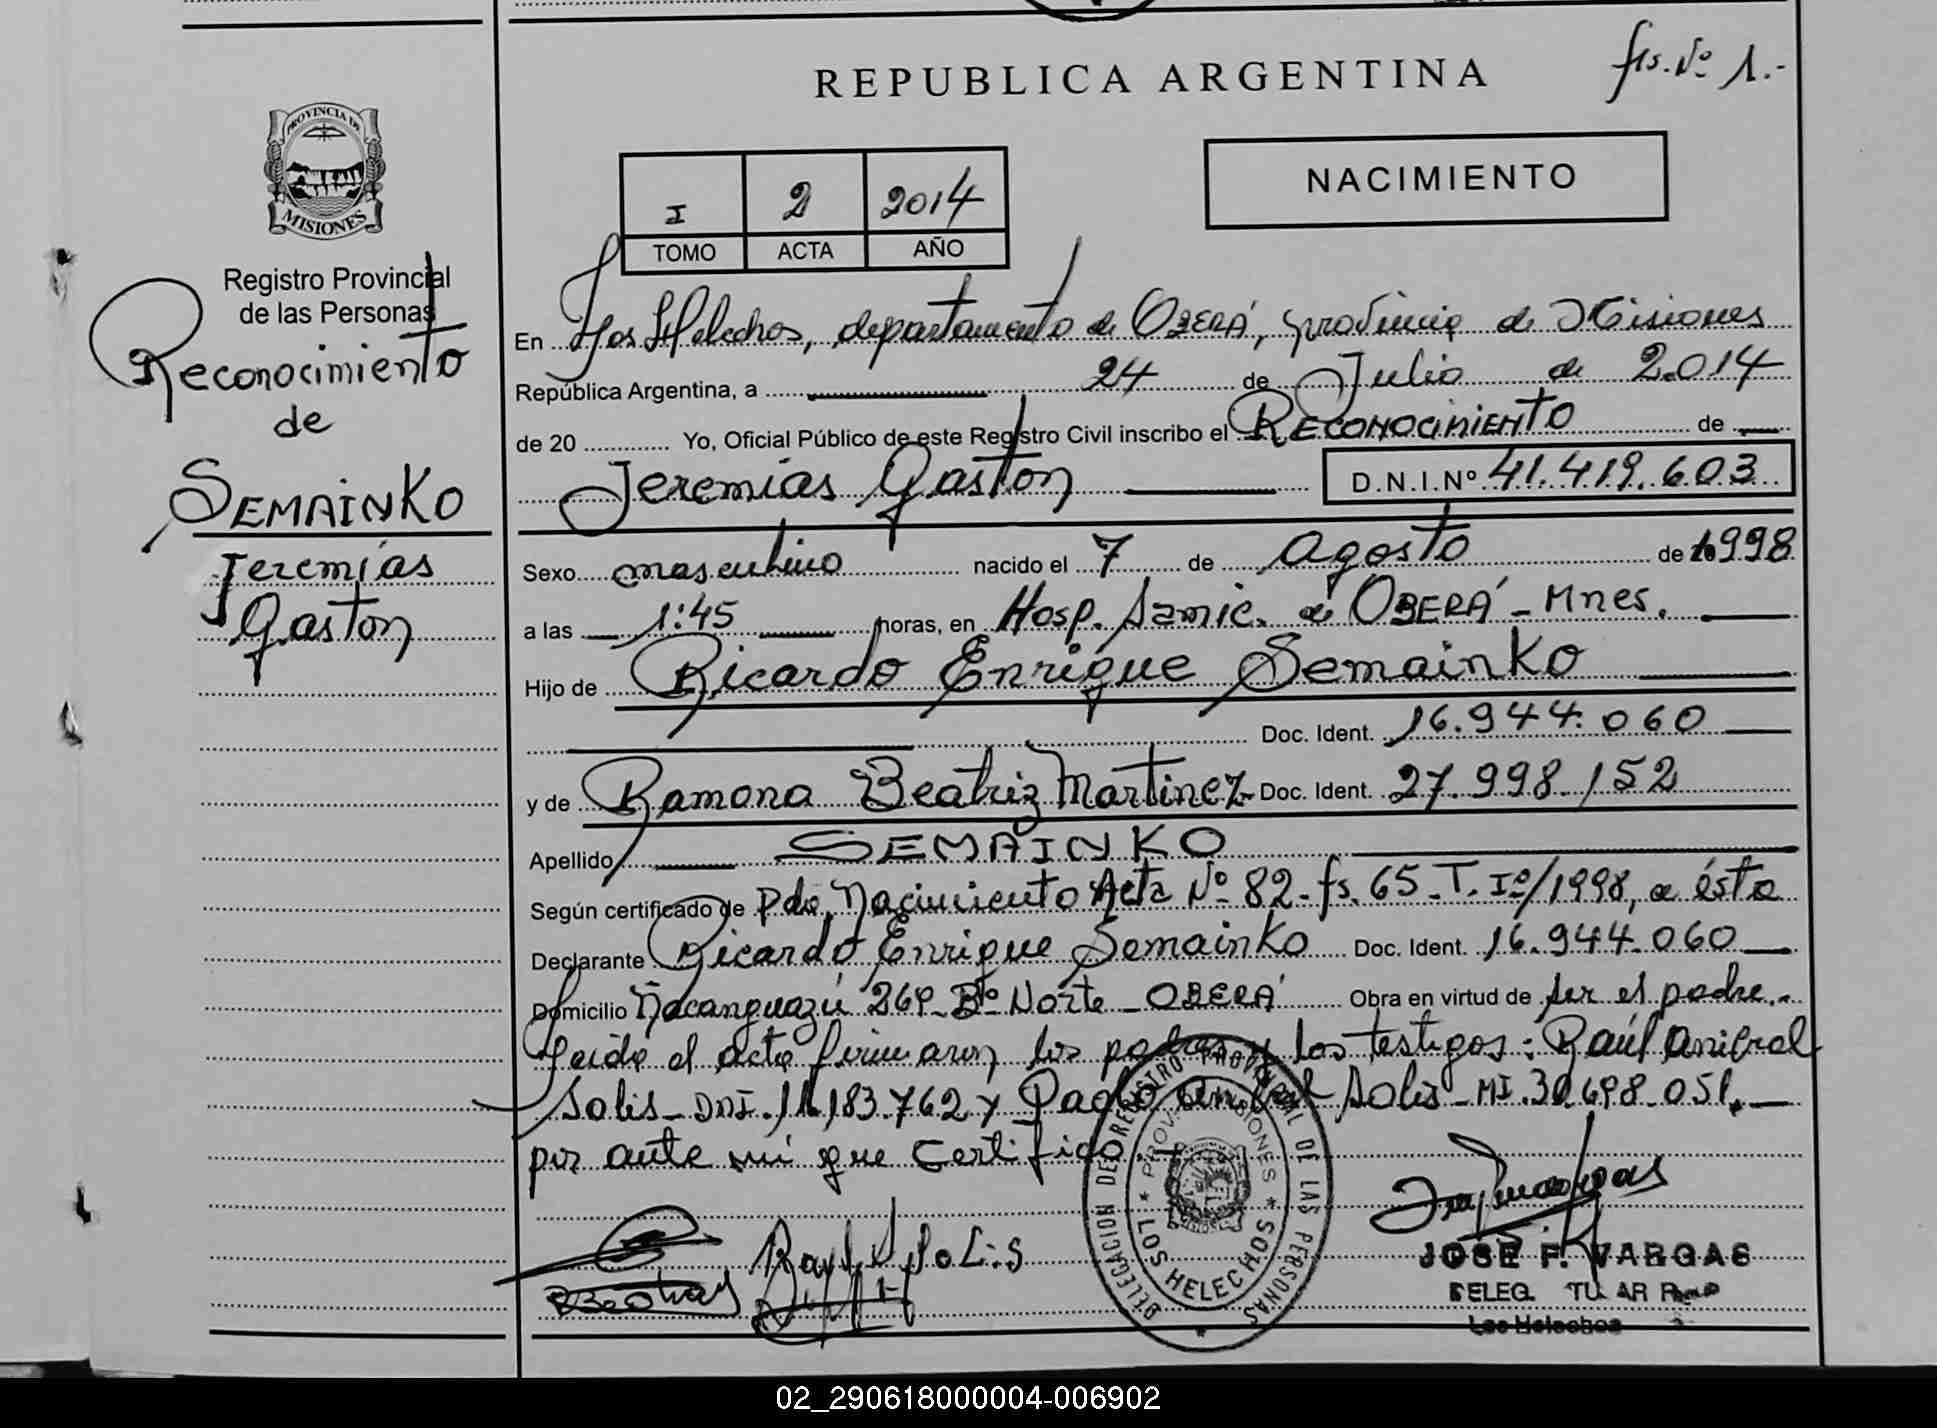 fs. Nº 1.-
REPUBLICA ARGENTINA
NACIMIENTO
I 2 2014
TOMO ACTA AÑO
PROVINCIA DE
MISIONES
Registro Provincial
de las Personas
Reconocimiento
de
SEMAINKO
Jeremías
Gaston
En Los Helechos, departamento de OBERÁ, provincia de Misiones
República Argentina, a 24 de Julio de 2.014
de 20 Yo, Oficial Público de este Registro Civil inscribo el RECONOCIMIENTO de
Jeremías Gaston D.N.I.Nº 41.419.603
Sexo masculino nacido el 7 de Agosto de 1998
a las 1:45 horas, en Hosp. Samic. de OBERÁ - Mnes.
Hijo de Ricardo Enrique Semainko
Doc. Ident. 16.944.060
y de Ramona Beatriz Martinez Doc. Ident. 27.998.152
Apellido SEMAINKO
Según certificado de Pdo. Nacimiento Acta Nº 82 - fs. 65 - T. Iº/1998, a ésta
Declarante Ricardo Enrique Semainko Doc. Ident. 16.944.060
Domicilio Ñacanguazú 269 - Bº Norte - OBERÁ Obra en virtud de ser el padre.-
Leída el acta firmaron los padres y los testigos: Raúl Anibal
Solis - DNI. 11.183.762 y Pablo Solis - MI. 30.698.051.
por ante mí que Certifico.
DELEGACION DE REGISTRO PROVINCIAL DE LAS PERSONAS
PROV. MISIONES * LOS HELECHOS *
Raul A Solis
JOSE F. VARGAS
DELEG. TITULAR
Los Helechos
02_290618000004-006902